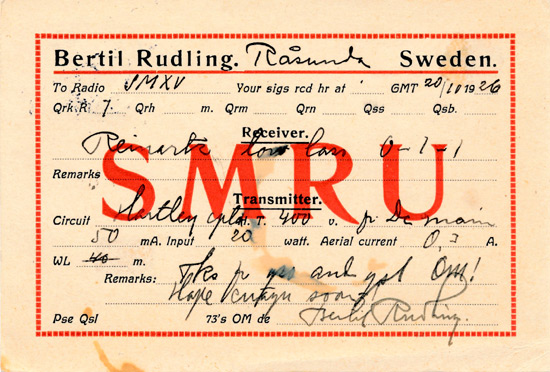 Bertil Rudling. Råsunda Sweden.
To Radio SMXV Your sigs rcd hr at GMT 20/10 1926
Qrk R 7 Qrh m. Qrm Qrn Qss Qsb.
Receiver.
Reinartz low loss 0-1-1
SMRU
Remarks
Transmitter.
Circuit Hartley cpld H.T. 400 v. fr DC main
50 mA. Input 20 watt. Aerial current 0,3 A.
WL m.
Remarks: Tks fr and qsl OM!
Hope soon!
Pse Qsl 73's OM de Bertil Rudling.